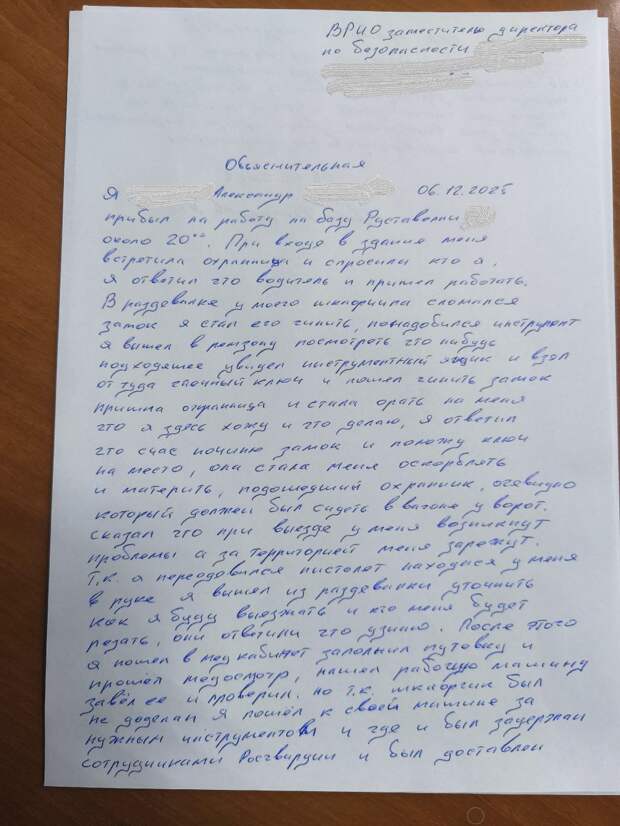 ВРИО заместителю директора
по безопасности
Объяснительная
Я Александр 06.12.2025
прибыл на работу на базу Руставелли
около 20⁰⁰. При входе в здания меня
встретила охранница и спросили кто я.
я ответил что водитель и пришел работать.
В раздевалке у моего шкафчика сломался
замок я стал его чинить, понадобился инструмент
я вышел в ремзону посмотреть что нибудь
подходящее увидел инструментный ящик и взял
от туда гаечный ключ и пошел чинить замок
пришла охранница и стала орать на меня
что я здесь хожу и что делаю, я ответил
что счас починю замок и положу ключ
на место, она стала меня оскорблять
и материть, подошедший охранник, очевидно
который должен был сидеть в вагоне у ворот.
сказал что при выезде у меня возникнут
проблемы а за территорией меня зарежут.
Т.к. я переодовался пистолет находился у меня
в руке я вышел из раздевалки уточнить
как я буду выезжать и кто меня будет
резать, они ответили что узнаю. После этого
я пошел в медкабинет заполнил путовку и
прошёл медосмотр, нашел рабочую машину
завёл ее и проверил. но т.к. шкафчик был
не доделан я пошёл к своей машине за
нужным инструментом и где и был задержан
сотрудниками Росгвардии и был доставлен